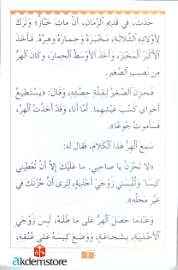 حدث، في قديم الزمان، أن مات خباز؛ وترك
لأولاده الثلاثة، مخبزه وحماره وهره. فأخذ
الأكبر المخبز، وأخذ الأوسط الحمار، وكان الهر
من نصيب الصغير.
فحزن الصغير لقلة حصته، وقال: «يستطيع
أخواي كسب عيشهما. أما أنا، وقد أخذت الهر،
فسأموت جوعا».
سمع الهر هذا الكلام، فقال له:
«لا تحزن يا صاحبي. ما عليك إلا أن تعطيني
كيسا وتلبسني زوجي أحذية، لترى أن حزنك في
غير محله».
وعندما حصل الهر على ما طلبه، لبس زوجي
الأحذية، بشجاعة، ووضع كيسه على عنقه،
akdemstore